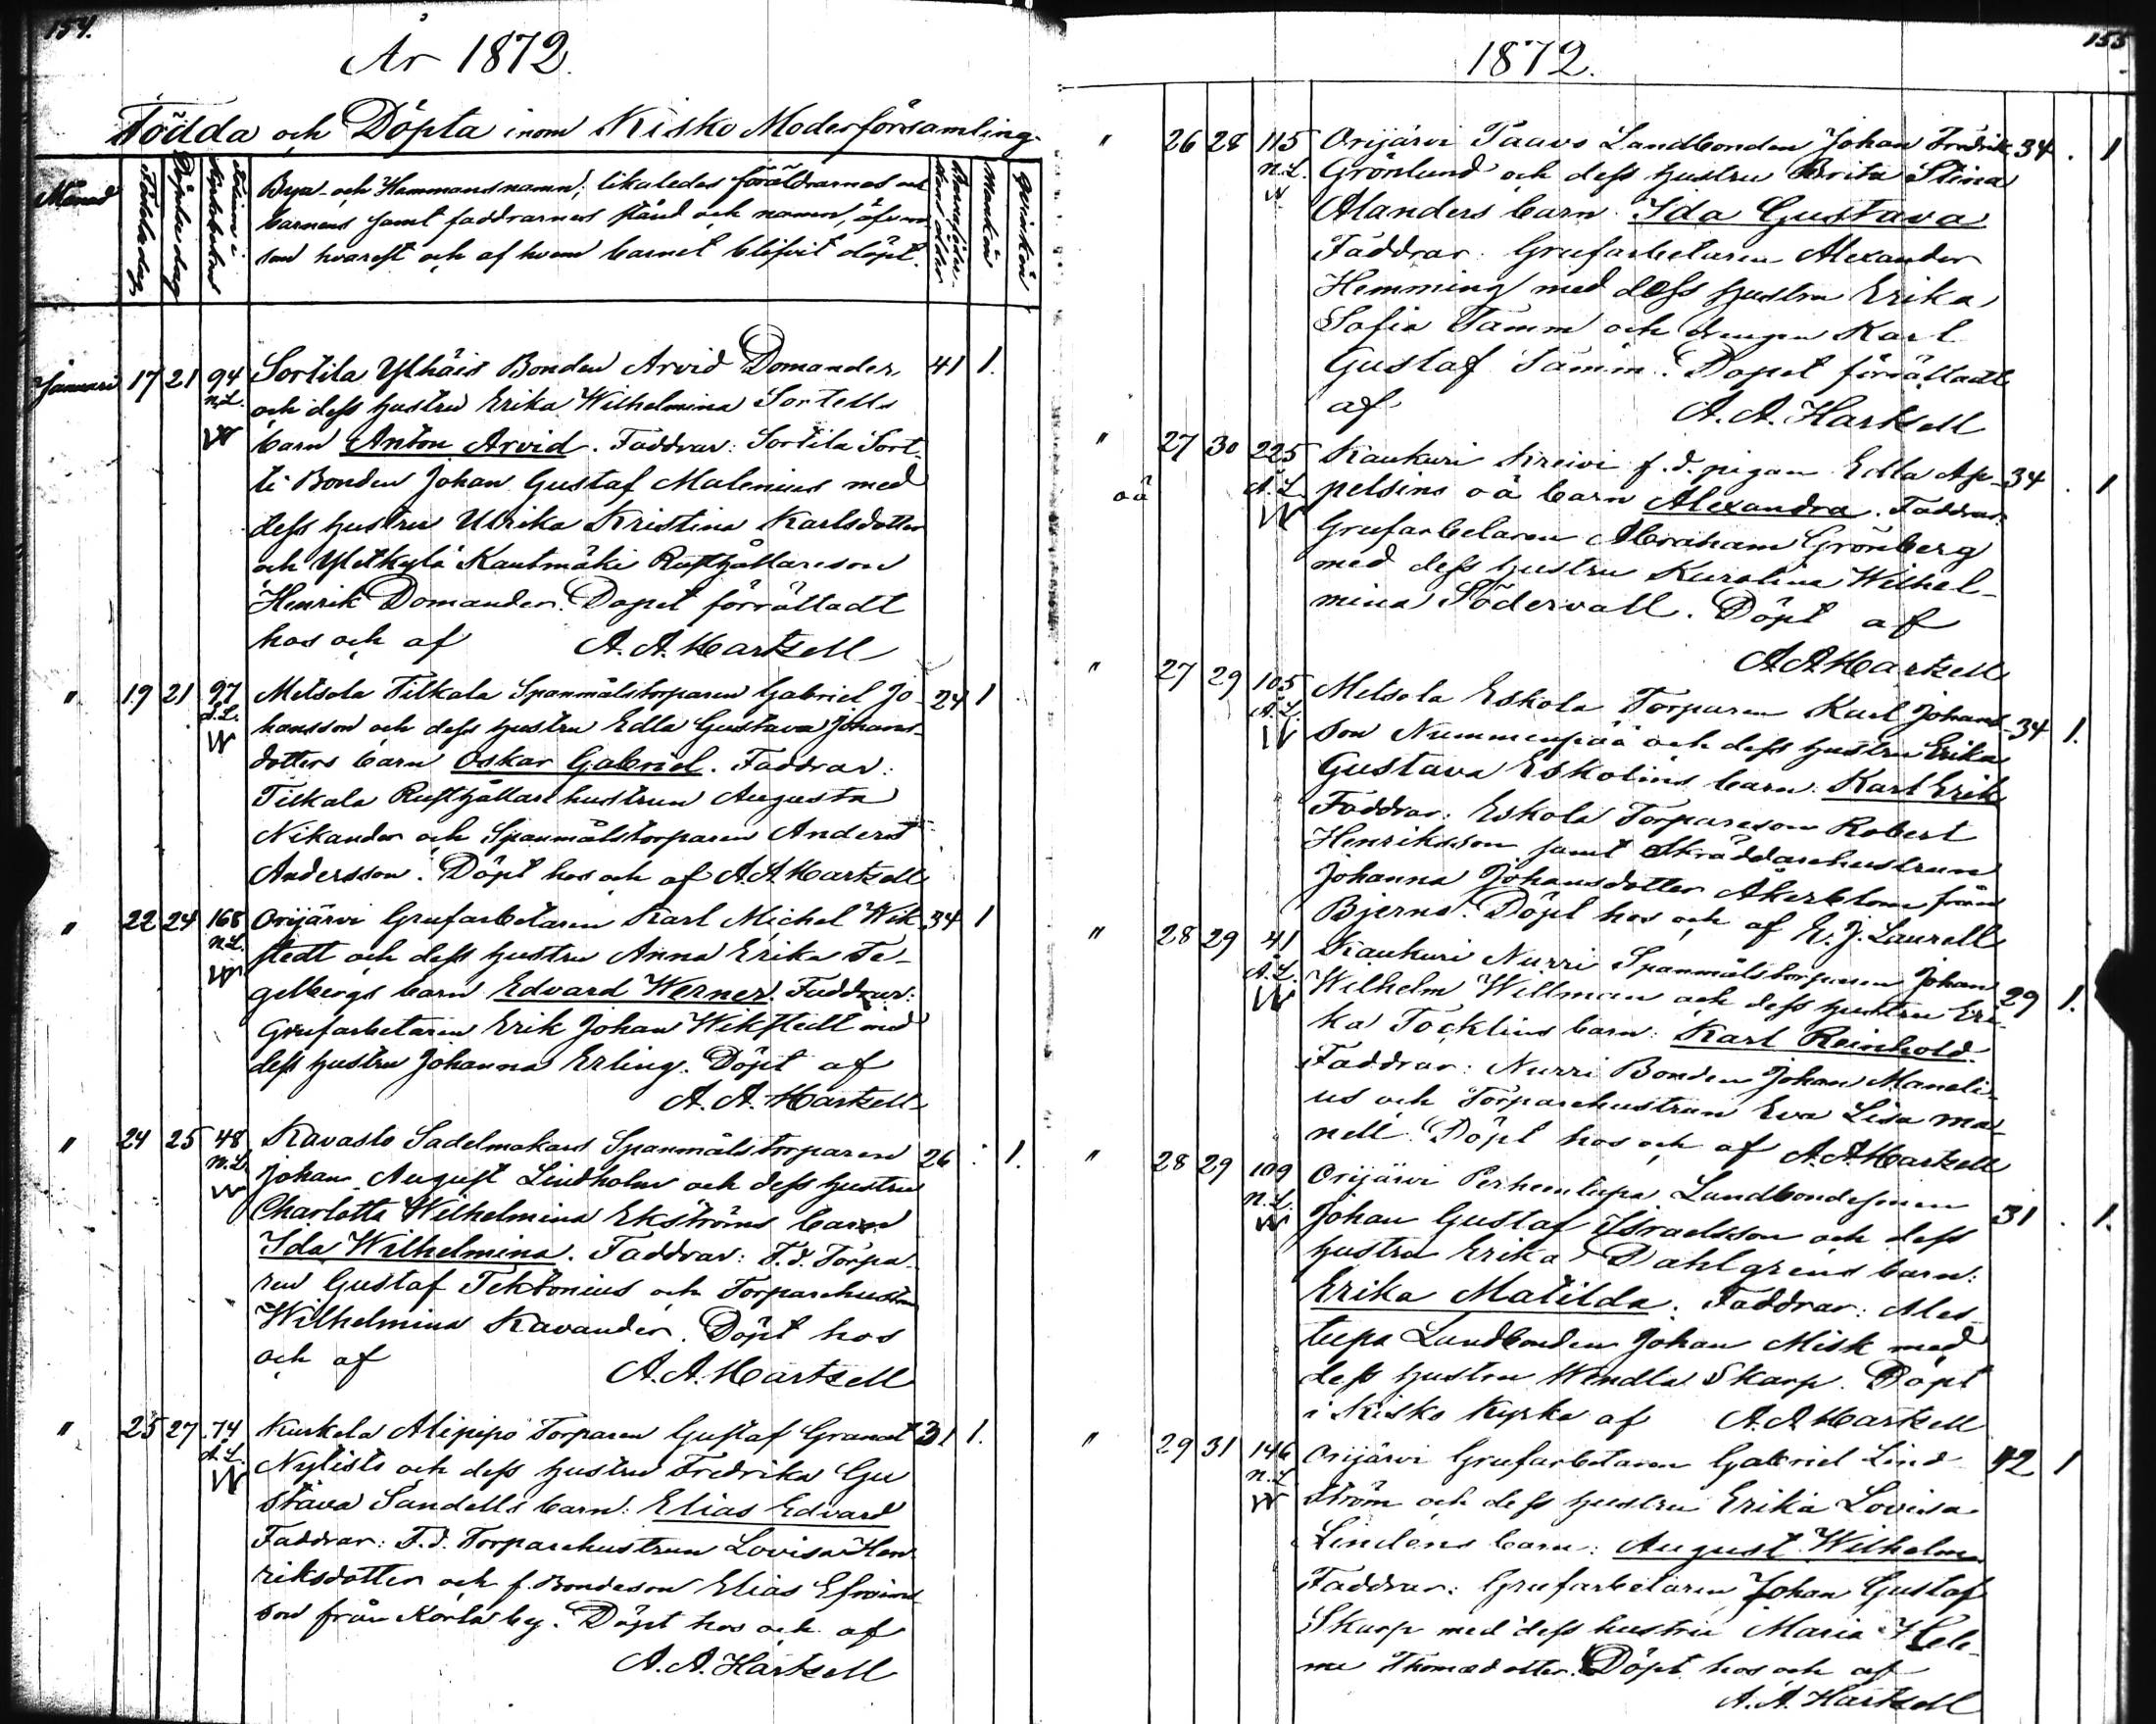 154.
År 1872.
Födda och Döpta inom Kisko Moderförsamling.
Månad
Födelsedag
Döpelsedag
Folium i Kyrkoboken
Bya- och Hemmansnamn; likaledes föräldrarnes och
barnens samt faddrarnes stånd och namn, äfven
som hvarest och af hvem barnet blifvit döpt.
Barnaföder-
skans ålder
Mankön
Qvinkön
Januari 17 21 94 Sortila Ylhäis Bonden Arvid Domander 41 1.
n.L. och dess hustru Erika Wilhelmina Sortells
W barn Anton Arvid. Faddrar: Sortila Sort-
ti Bonden Johan Gustaf Malenius med
dess hustru Ulrika Kristina Karlsdotter
och Yletkylä Kautmäki Rusthållareson
Henrik Domander. Dopet förrättadt
hos och af A. A. Hartzell
" 19 21 97 Metsola Tilkala Spanmålstorparen Gabriel Jo- 24 1
A.L. hansson och dess hustru Edla Gustava Johans-
W dotters barn Oskar Gabriel. Faddrar:
Tilkala Rusthållarehustrun Augusta
Nikander och Spanmålstorparen Anders
Andersson. Döpt hos och af A. A. Hartzell
" 22 24 168 Orijärvi Grufarbetaren Karl Michel Wik- 34 1
n.L. stedt och dess hustru Anna Erika Te-
W gelbergs barn Edvard Werner. Faddrar:
Grufarbetaren Erik Johan Wikstedt med
dess hustru Johanna Erling. Döpt af
A. A. Hartzell
" 24 25 48 Kavasto Sadelmakars Spanmålstorparen 26 . 1.
n.L. Johan August Lindholm och dess hustru
W Charlotta Wilhelmina Ekströms barn
Ida Wilhelmina. Faddrar: F.d. Torpa-
ren Gustaf Tektonius och Torparehustrun
Wilhelmina Kavander. Döpt hos
och af A. A. Hartzell
" 25 27 74 Kurkela Alipipo Torparen Gustaf Granat 31 1.
A.L. Nylisto och dess hustru Fredrika Gu
W stava Sandells barn: Elias Edvard
Faddrar: F.d. Torparehustrun Lovisa Hen-
riksdotter och f. Bondeson Elias Efraims-
son från Korla by. Döpt hos och af
A. A. Hartzell
155
1872.
" 26 28 115 Orijärvi Paavo Landbonden Johan Fredrik 34 . 1
n.L. Grönlund och dess hustru Brita Stina
W Alanders barn Ida Gustava
Faddrar: Grufarbetaren Alexander
Hemming med dess hustru Erika
Sofia Tamm och drengen Karl
Gustaf Tamm. Dopet förrättadt
af A. A. Hartzell
" 27 30 225 Kaukuri Kreivi f.d. pigan Edla Ap- 34 . 1
oä A.L. pelsins oä barn Alexandra. Faddrar:
W Grufarbetaren Abraham Grönberg
med dess hustru Karolina Wilhel-
mina Södervall. Döpt af
A. A. Hartzell
" 27 29 105 Metsola Eskola Torparen Karl Johans- 34 1.
A.L. son Nummenpää och dess hustru Erika
W Gustava Eskolins barn: Karl Erik
Faddrar: Eskola Torpareson Robert
Henriksson samt Skräddarehustrun
Johanna Johansdotter Åkerblom från
Bjerno. Döpt hos och af E. J. Laurell
" 28 29 41 Kaukuri Nurri Spanmålstorparen Johan 29 1.
A.L. Wilhelm Willman och dess hustru Eri-
W ka Tocklins barn: Karl Reinhold.
Faddrar: Nurri Bonden Johan Maneli-
us och Torparehustrun Eva Lisa Ma-
nell. Döpt hos och af A. A. Hartzell
" 28 29 109 Orijärvi Perhentupa Landbondesonen 31 . 1.
n.L. Johan Gustaf Israelsson och dess
W hustru Erika Dahlgrens barn:
Erika Matilda. Faddrar: Ales-
tupa Landbonden Johan Misk med
dess hustru Wendla Skarp. Döpt
i Kisko Kyrka af A. A. Hartzell
" 29 31 146 Orijärvi Grufarbetaren Gabriel Lind- 42 1
n.L. ström och dess hustru Erika Lovisa
W Lindens barn: August Wilhelm
Faddrar: Grufarbetaren Johan Gustaf
Skarp med dess hustru Maria Hele-
na Thomasdotter. Döpt hos och af
A. A. Hartzell